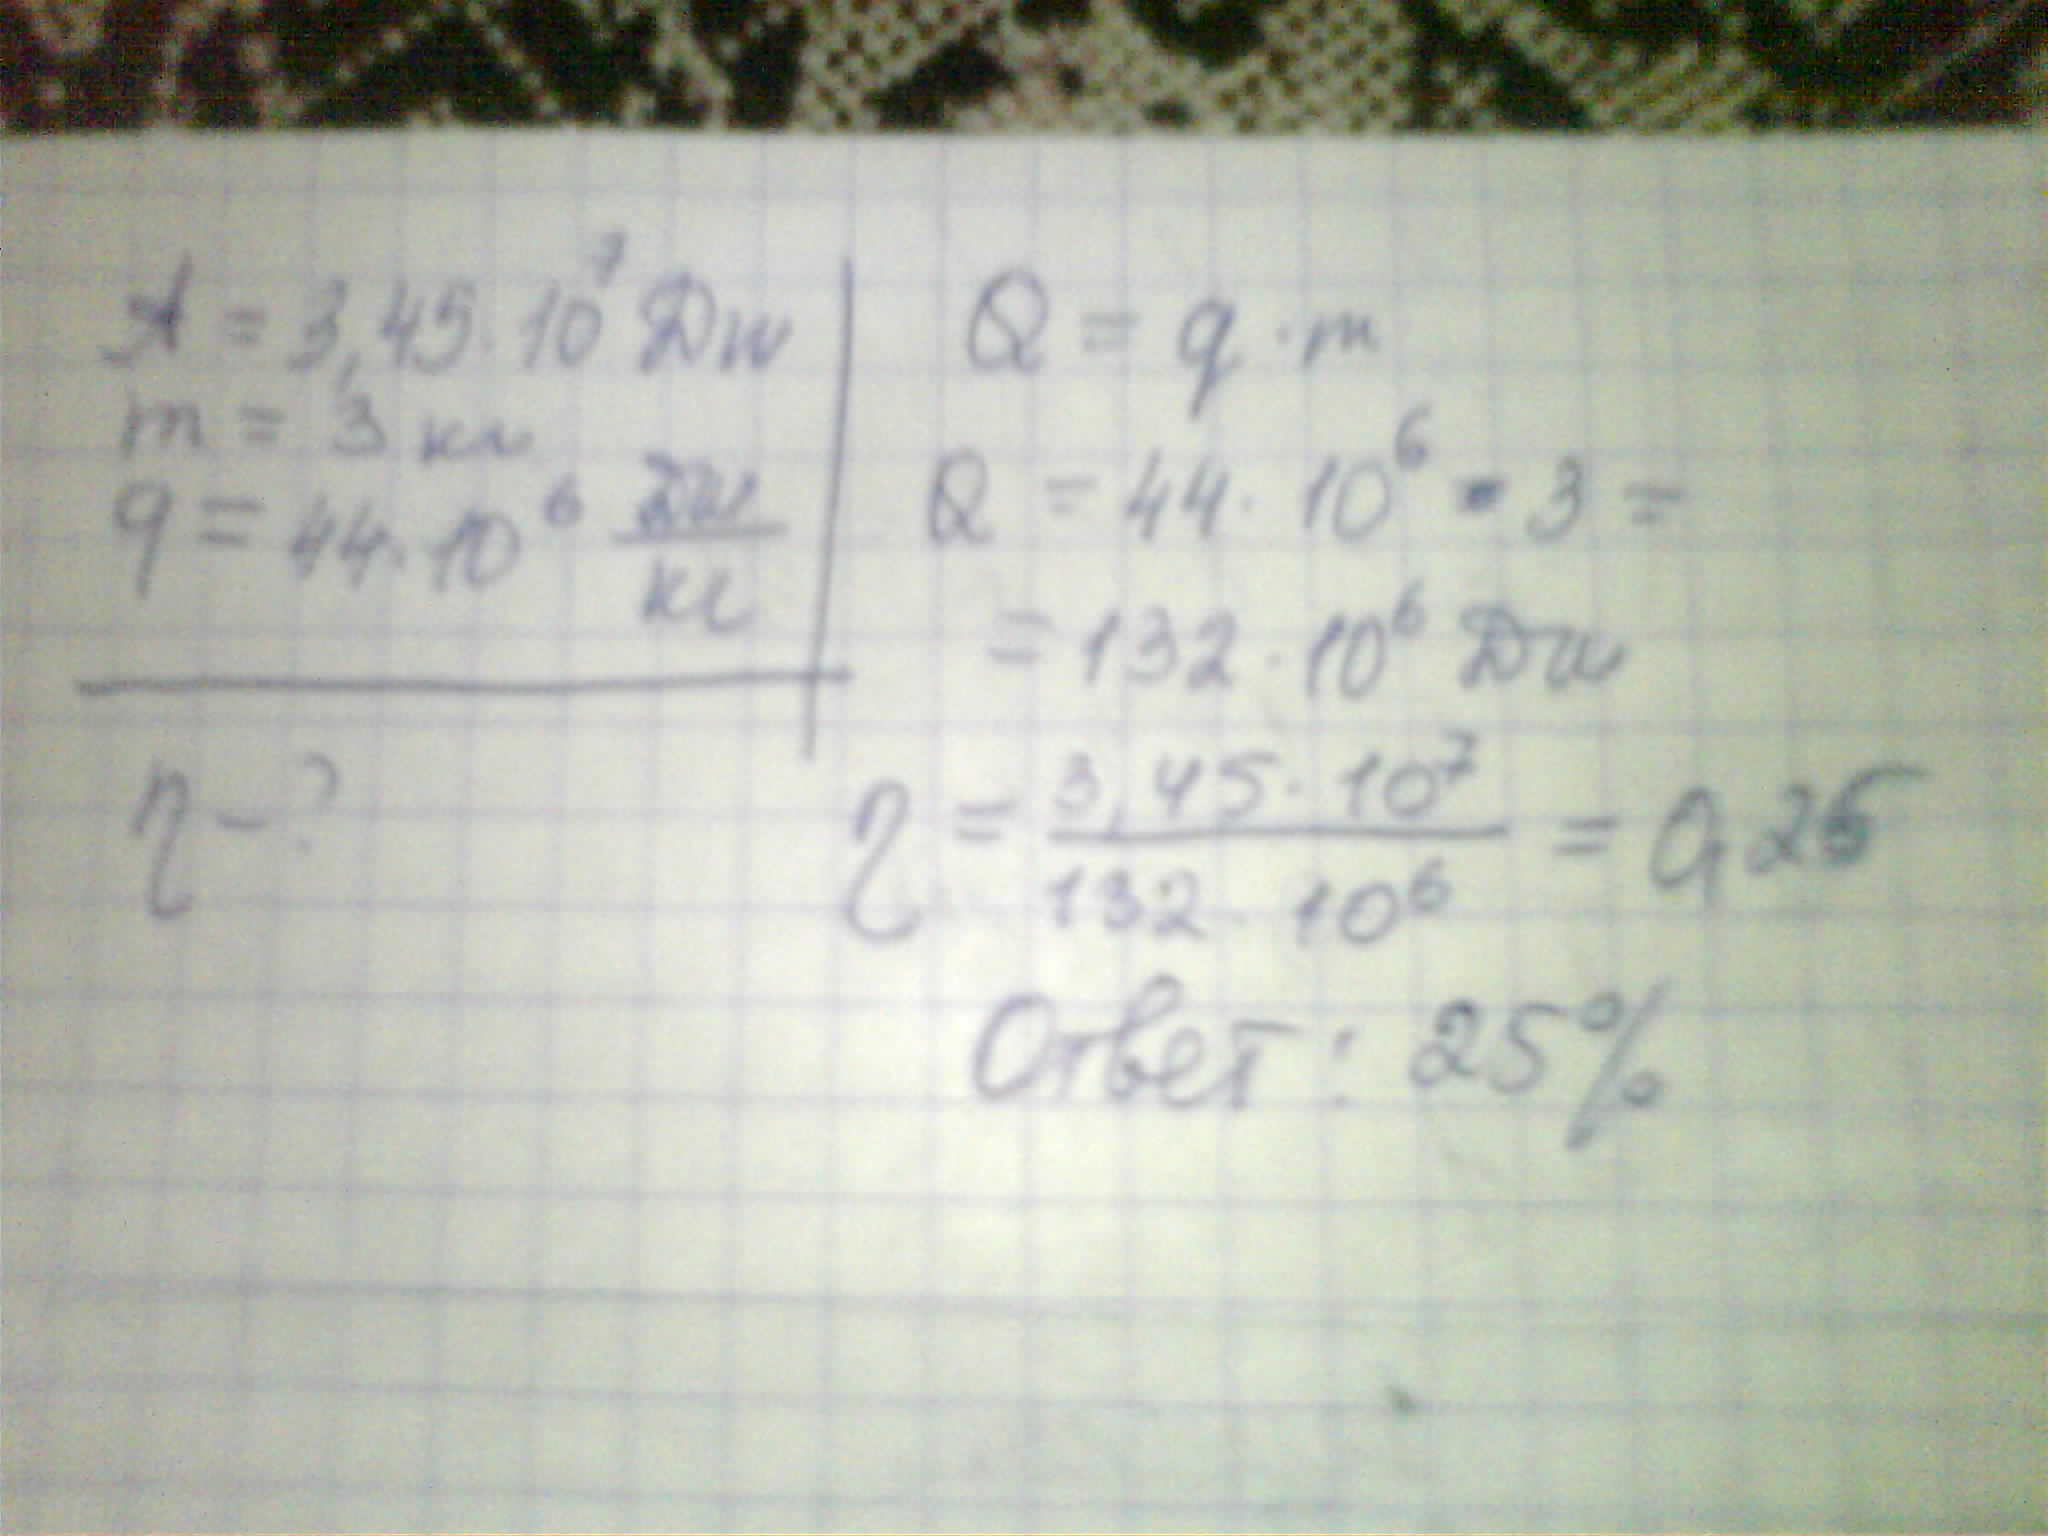 A = 3,45·10⁷ Дж
m = 3 кг
q = 44·10⁶ Дж/кг
η – ?
Q = q·m
Q = 44·10⁶·3 =
= 132·10⁶ Дж
η = 3,45·10⁷ / 132·10⁶ = 0,25
Ответ: 25%